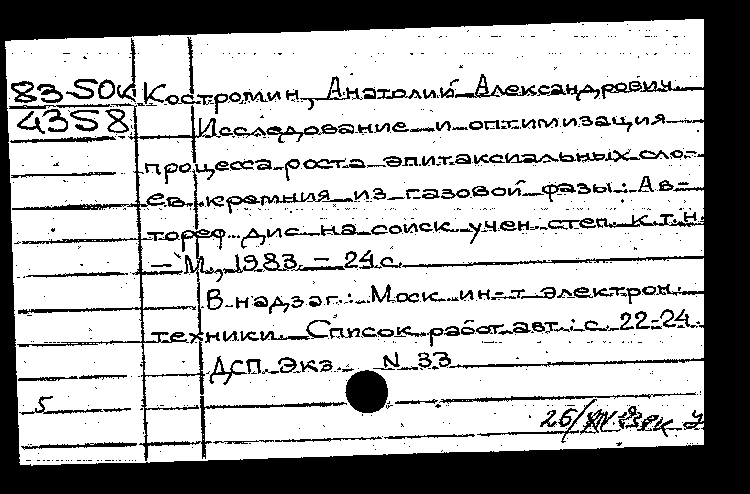 83-50к Костромин, Анатолий Александрович
4358 Исследование и оптимизация
процесса роста эпитаксиальных сло-
ев кремния из газовой фазы: Ав-
тореф. дис. на соиск. учен. степ. к.т.н.
- М., 1983. - 24 с.
В надзаг.: Моск. ин-т электрон.
техники. Список работ авт.: с. 22-24.
ДСП. Экз. N 33
5
26/XII